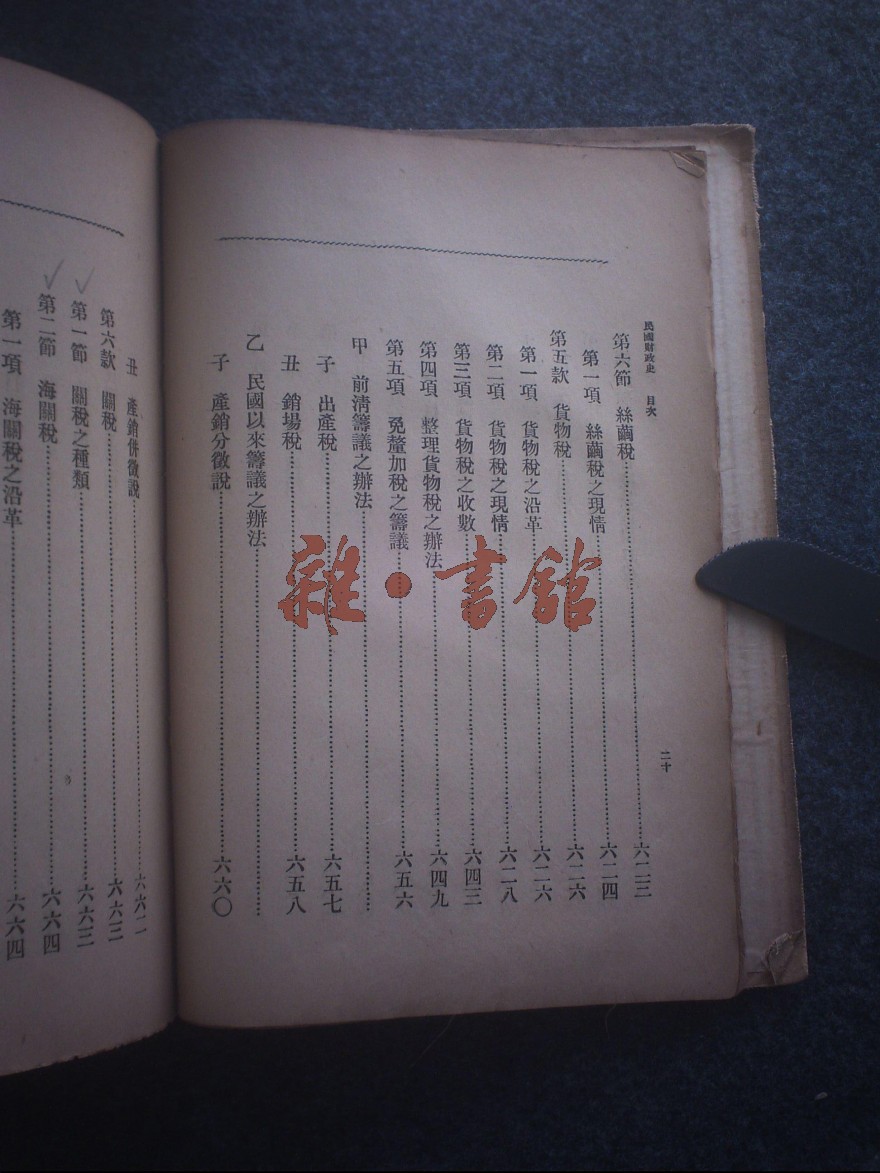 民國財政史 目次 二十
第六節 絲繭稅 六二三
第一項 絲繭稅之現情 六二四
第五款 貨物稅 六二六
第一項 貨物稅之沿革 六二六
第二項 貨物稅之現情 六二八
第三項 貨物稅之收數 六四三
第四項 整理貨物稅之辦法 六四九
第五項 免釐加稅之籌議 六五六
甲 前淸籌議之辦法
子 出產稅 六五七
丑 銷場稅 六五八
乙 民國以來籌議之辦法
子 產銷分徵說 六六〇
丑 產銷併徵說 六六二
第六款 關稅 六六三
第一節 關稅之種類 六六三
第二節 海關稅 六六四
第一項 海關稅之沿革 六六四
雜·書館